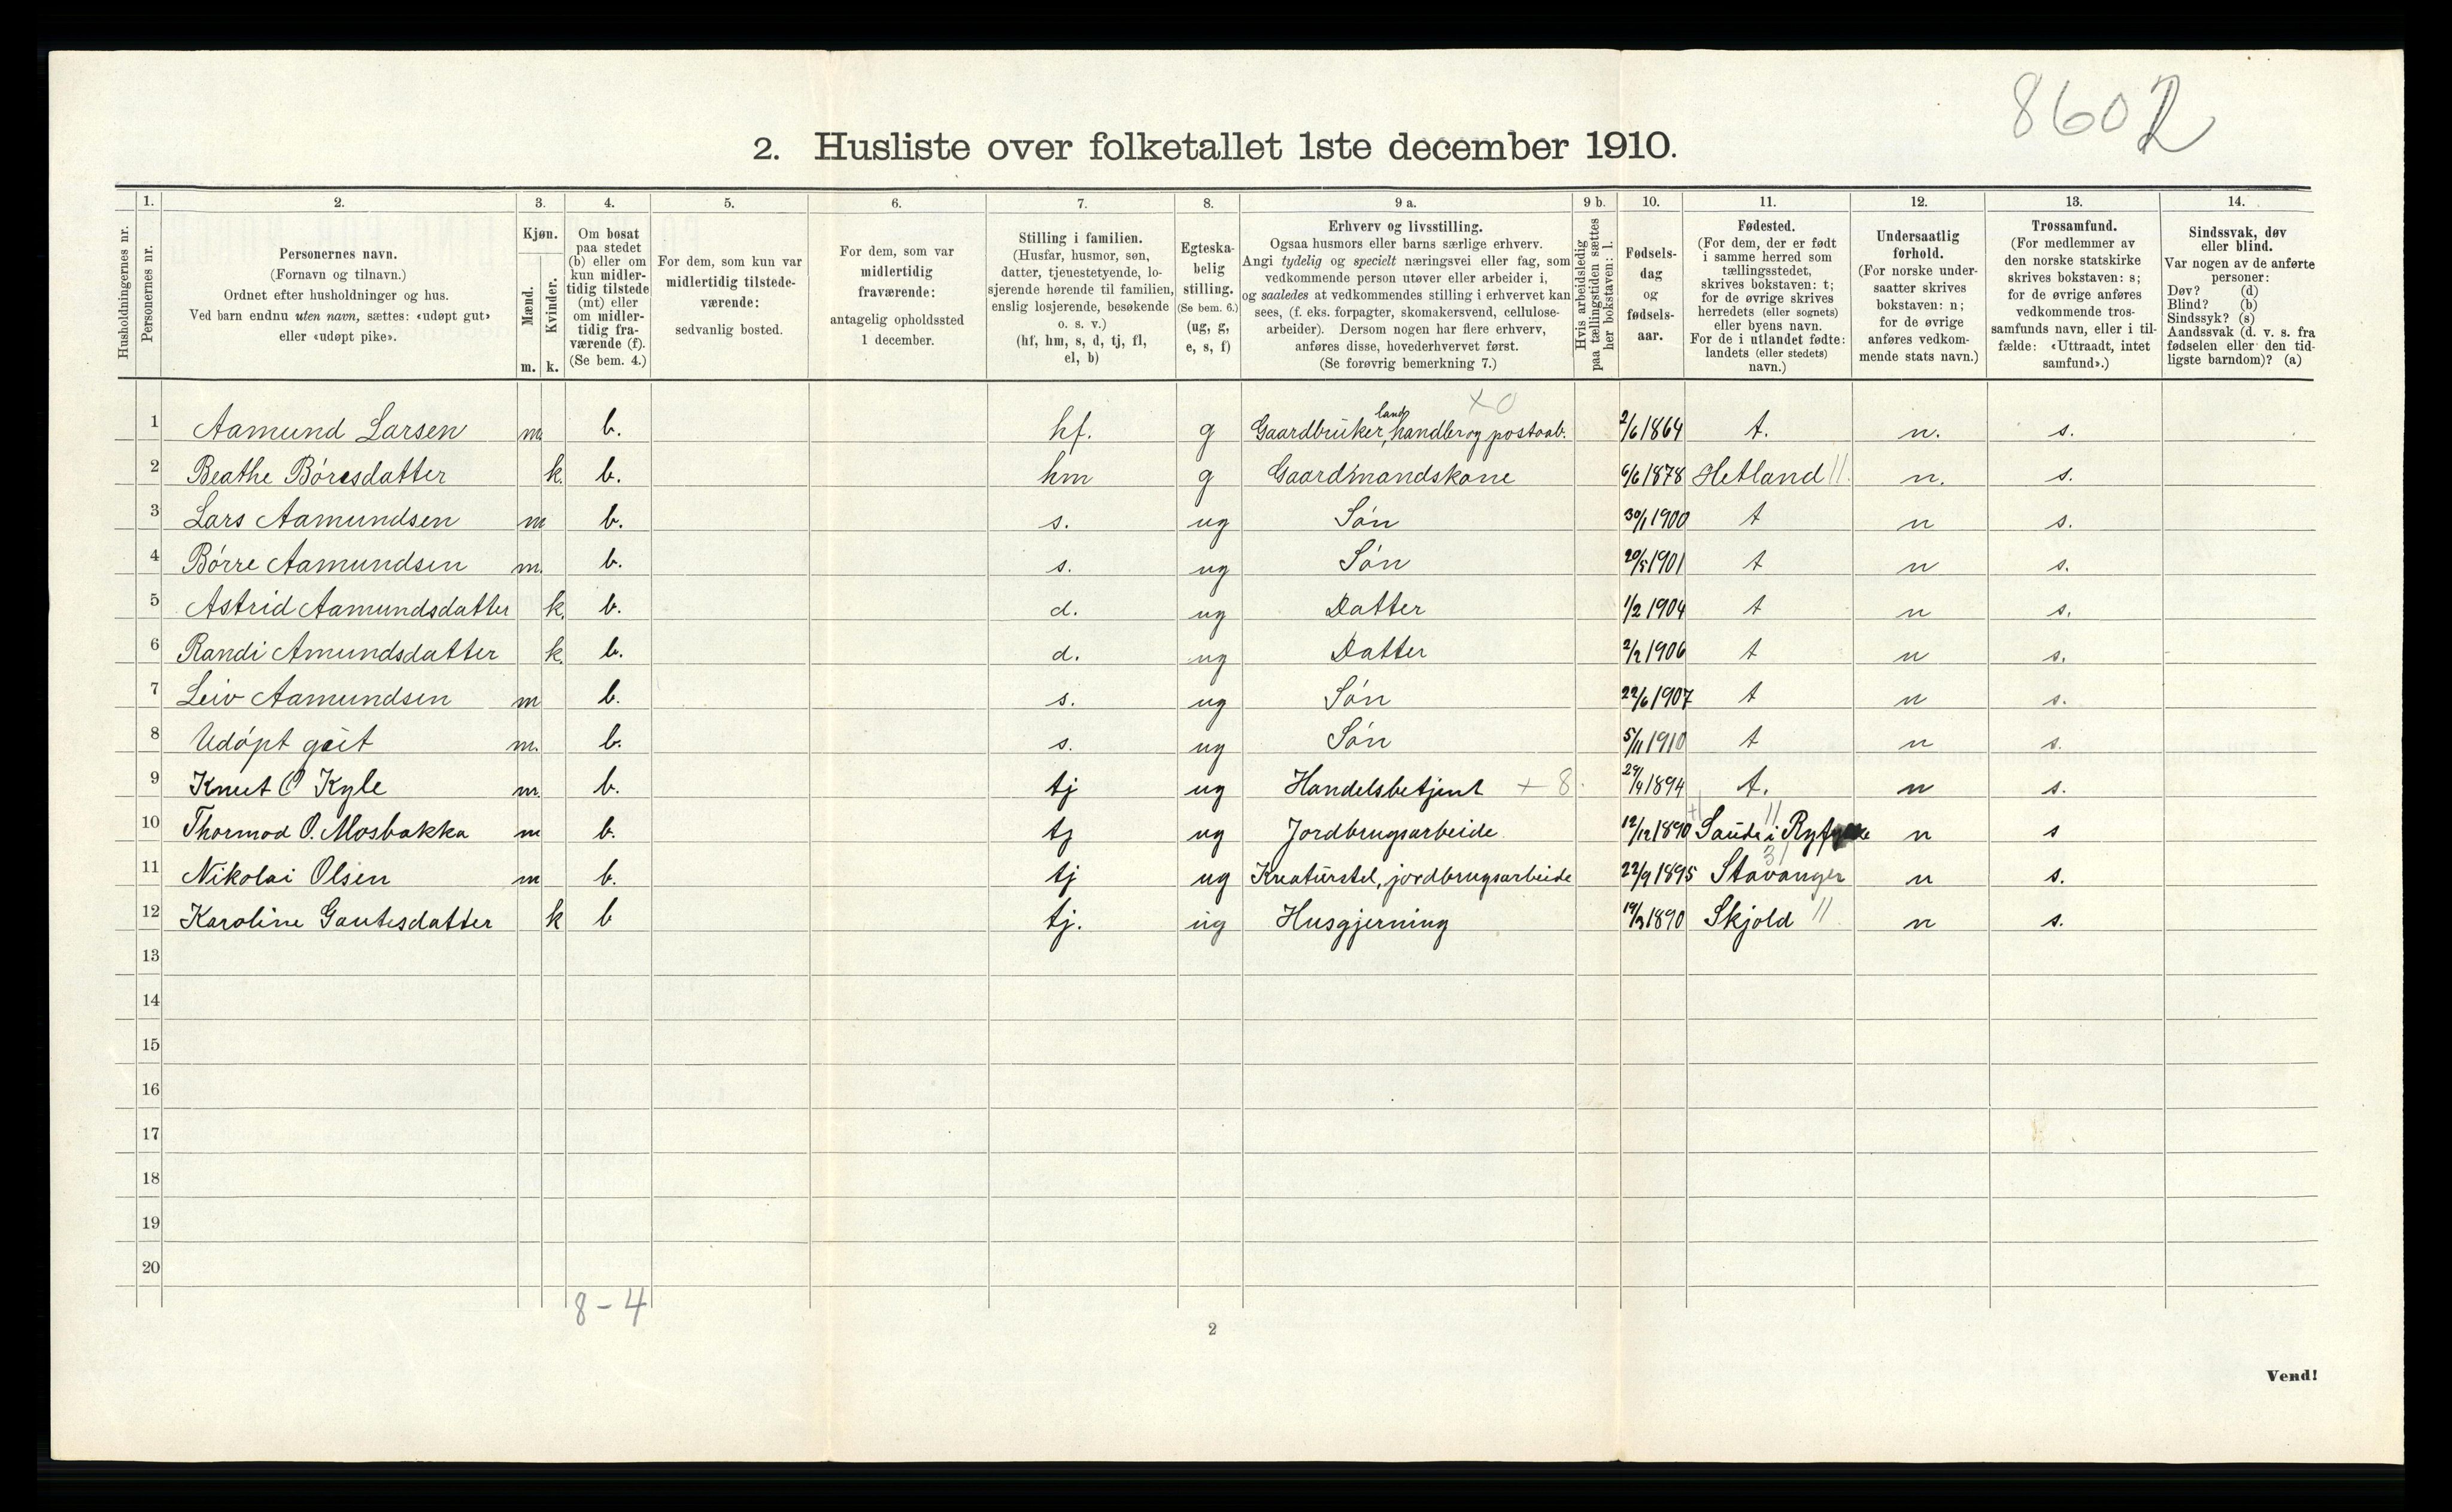 8602
2. Husliste over folketallet 1ste december 1910.
Husholdningernes nr.
1.
Personernes nr.
2.
Personernes navn.
(Fornavn og tilnavn.)
Ordnet efter husholdninger og hus.
Ved barn endnu uten navn, sættes: «udøpt gut»
eller «udøpt pike».
3.
Kjøn.
Mænd.
Kvinder.
m. k.
4.
Om bosat
paa stedet
(b) eller om
kun midler-
tidig tilstede
(mt) eller
om midler-
tidig fra-
værende (f).
(Se bem. 4.)
5.
For dem, som kun var
midlertidig tilstede-
værende:
sedvanlig bosted.
6.
For dem, som var
midlertidig
fraværende:
antagelig opholdssted
1 december.
7.
Stilling i familien.
(Husfar, husmor, søn,
datter, tjenestetyende, lo-
sjerende hørende til familien,
enslig losjerende, besøkende
o. s. v.)
(hf, hm, s, d, tj, fl,
el, b)
8.
Egteska-
belig
stilling.
(Se bem. 6.)
(ug, g,
e, s, f)
9 a.
Erhverv og livsstilling.
Ogsaa husmors eller barns særlige erhverv.
Angi tydelig og specielt næringsvei eller fag, som
vedkommende person utøver eller arbeider i,
og saaledes at vedkommendes stilling i erhvervet kan
sees, (f. eks. forpagter, skomakersvend, cellulose-
arbeider). Dersom nogen har flere erhverv,
anføres disse, hovederhvervet først.
(Se forøvrig bemerkning 7.)
9 b.
Hvis arbeidsledig
paa tællingstiden sættes
her bokstaven: l.
10.
Fødsels-
dag
og
fødsels-
aar.
11.
Fødested.
(For dem, der er født
i samme herred som
tællingsstedet,
skrives bokstaven: t;
for de øvrige skrives
herredets (eller sognets)
eller byens navn.
For de i utlandet fødte:
landets (eller stedets)
navn.)
12.
Undersaatlig
forhold.
(For norske under-
saatter skrives
bokstaven: n;
for de øvrige
anføres vedkom-
mende stats navn.)
13.
Trossamfund.
(For medlemmer av
den norske statskirke
skrives bokstaven: s;
for de øvrige anføres
vedkommende tros-
samfunds navn, eller i til-
fælde: «Uttraadt, intet
samfund».)
14.
Sindssvak, døv
eller blind.
Var nogen av de anførte
personer:
Døv? (d)
Blind? (b)
Sindssyk? (s)
Aandssvak (d. v. s. fra
fødselen eller den tid-
ligste barndom)? (a)
x0
1 Aamund Larsen m. b. hf. g Gaardbruker, landhandler og postaab. 2/6 1864 t. n. s.
2 Beathe Børesdatter k. b. hm g Gaardmandskone 6/6 1878 Hetland 11. n. s.
3 Lars Aamundsen m b. s. ug Søn 30/1 1900 t n s.
4 Børre Aamundsen m. b. s. ug Søn 20/5 1901 t n s.
5 Astrid Aamundsdatter k. b. d. ug Datter 1/2 1904 t n s.
6 Randi Amundsdatter k. b. d. ug Datter 2/2 1906 t n s.
7 Leiv Aamundsen m b. s. ug Søn 22/6 1907 t n s.
8 Udøpt gut m. b. s. ug Søn 5/11 1910 t n s.
9 Knut O Kyle m. b. tj ug Handelsbetjent + 8. 29/9 1894 t. n s.
10 Thormod O. Mosbakka m b. tj ug Jordbrugsarbeide 12/12 1890 Saude i 11 n s
11 Nikolai Olsen m b. tj ug Kreaturstel, jordbrugsarbeide 22/9 1895 Stavanger 31 n s.
12 Karoline Gautesdatter k b tj. ug Husgjerning 19/3 1890 Skjold 11 n s.
13
14
15
16
17
18
19
20
8-4
2
Vend!